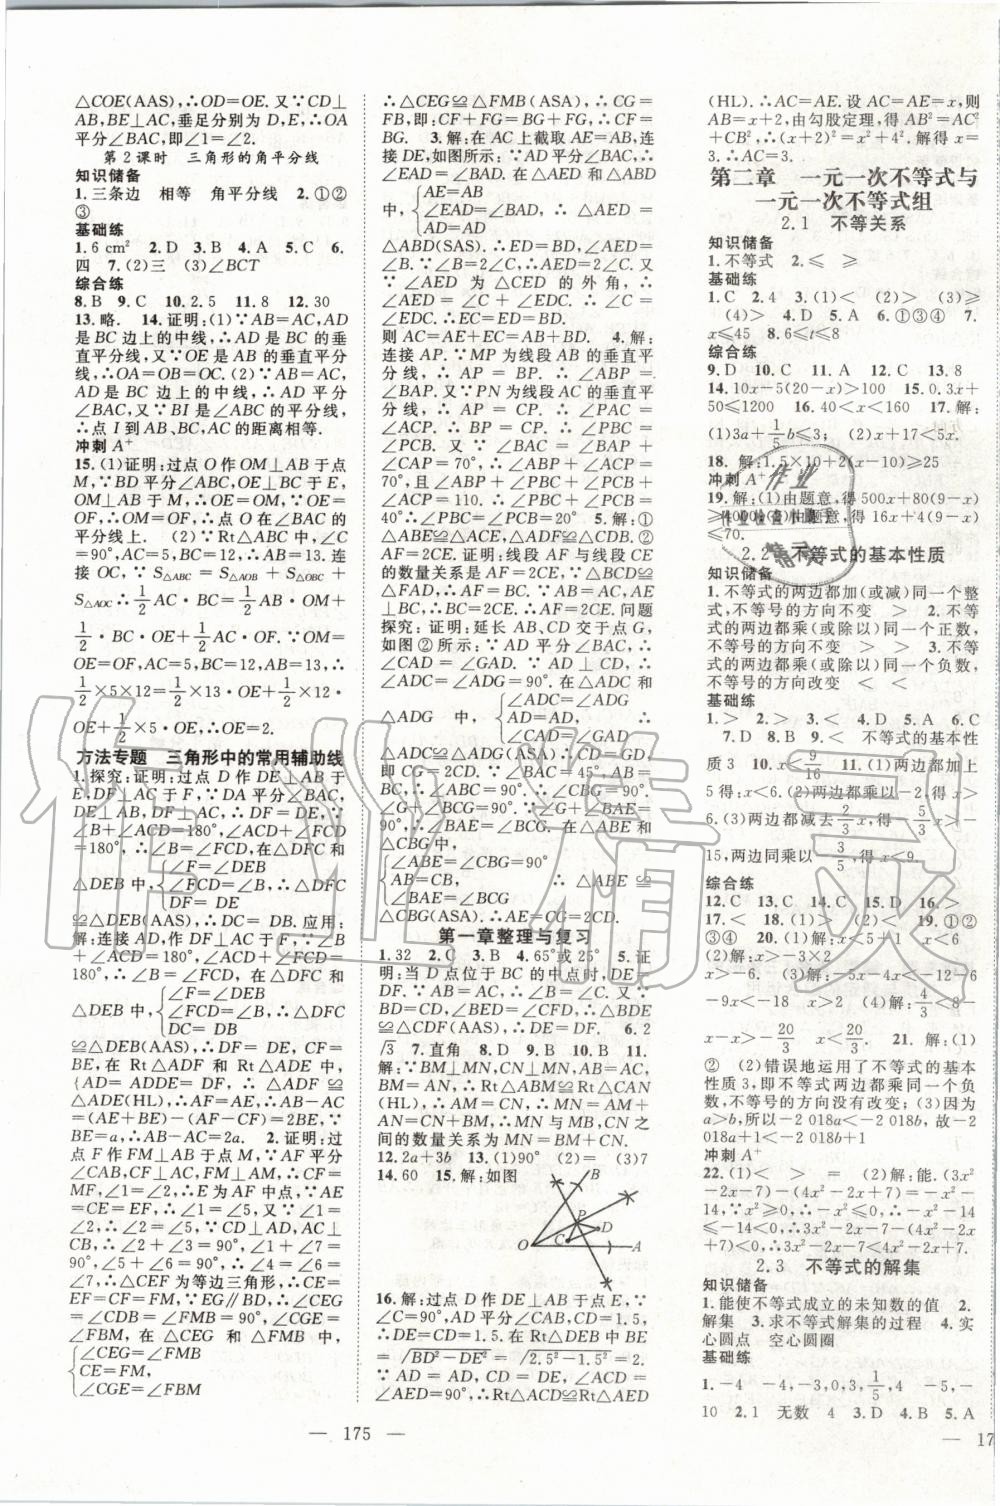 △COE(AAS),∴OD=OE.又∵CD⊥
AB,BE⊥AC,垂足分别为D,E,∴OA
平分∠BAC,即∠1=∠2.
第2课时 三角形的角平分线
知识储备
1.三条边 相等 角平分线 2.①②
③
基础练
1.6 cm² 2.D 3.B 4.A 5.C 6.
四 7.(2)三 (3)∠BCT
综合练
8.B 9.C 10.2.5 11.8 12.30
13.略. 14.证明:(1)∵AB=AC,AD
是BC边上的中线,∴AD是BC的垂
直平分线,又∵OE是AB的垂直平分
线,∴OA=OB=OC.(2)∵AB=AC,
AD是BC边上的中线,∴AD平分
∠BAC,又∵BI是∠ABC的角平分
线,∴点I到AB、BC、AC的距离相等.
冲刺A⁺
15.(1)证明:过点O作OM⊥AB于点
M,∵BD平分∠ABC,OE⊥BC于E,
OM⊥AB于M,∴OM=OE,∵OE=
OF,∴OM=OF,∴点O在∠BAC的
平分线上.(2)∵Rt△ABC中,∠C
=90°,AC=5,BC=12,∴AB=13,连
接OC,∵S△ABC=S△ABO+S△OBC+
S△AOC∴1/2AC·BC=1/2AB·OM+
1/2·BC·OE+1/2AC·OF.∵OM=
OE=OF,AC=5,BC=12,AB=13,∴
1/2×5×12=1/2×13·OE+1/2×12·
OE+1/2×5·OE,∴OE=2.
方法专题 三角形中的常用辅助线
1.探究:证明:过点D作DE⊥AB于
E,DF⊥AC于F,∵DA平分∠BAC,
DE⊥AB,DF⊥AC,∴DF=DE,∵
∠B+∠ACD=180°,∠ACD+∠FCD
=180°,∴∠B=∠FCD,在△DFC和
△DEB中,{∠F=∠DEB
∠FCD=∠B,∴△DFC
DF=DE
≌△DEB(AAS),∴DC=DB.应用:
解:连接AD,作DF⊥AC于F,∵∠B
+∠ACD=180°,∠ACD+∠FCD=
180°,∴∠B=∠FCD,在△DFC和
△DEB中,{∠F=∠DEB
∠FCD=∠B,∴△DFC
DC=DB
≌△DEB(AAS),∴DF=DE,CF=
BE,在Rt△ADF和Rt△ADE中,
{AD=ADDE=DF,∴△ADF≌
△ADE(HL),∴AF=AE,∴AB-AC
=(AE+BE)-(AF-CF)=2BE,∵
BE=a,∴AB-AC=2a. 2.证明:过
点F作FM⊥AB于点M,∵AF平分
∠CAB,CF⊥AC,FM⊥AB,∴CF=
MF,∠1=∠2,∵E为AF中点,∵AE
=CE=EF,∴∠4=∠5,又∵∠1=
∠2=∠2,∴∠4=∠5=∠1+∠3=
2∠1,∵∠1=30°,∴∠4=∠5=2∠1
=60°,∴△CEF为等边三角形,∴CE=
EF=CF=FM,∵EG∥BD,∴∠CEG
=∠CDB=∠FMB=90°,∠CGE=
∠FBM,在△CEG和△FMB中,
{∠CEG=∠FMB
CE=FM,
∠CGE=∠FBM
∴△CEG≌△FMB(ASA),∴CG=
FB,即CF+FG=BG+FG,∴CF=
BG. 3.解:在AC上截取AE=AB,连
接DE,如图所示:∵AD平分∠BAC,∴
∠EAD=∠BAD.在△EAD和△ABD
中,{AE=AB
∠EAD=∠BAD,∴△EAD≌
AD=AD
△ABD(SAS).∴DE=BD,∠AED=
∠B.∵∠B=2∠C,∴∠AED=2∠C.又
∵∠AED为△CED的外角,∴
∠AED=∠C+∠EDC,∴∠C=
∠EDC.∴EC=ED=BD.
则AC=AE+EC=AB+BD. 4.解:
连接AP.∵MP为线段AB的垂直平
分线,∴AP=BP.∴∠ABP=
∠BAP.又∵PN为线段AC的垂直平
分线,∴AP=CP.∴∠PAC=
∠ACP.∴BP=CP.∴∠PBC=
∠PCB.又∵∠BAC=∠BAP+
∠CAP=70°,∴∠ABP+∠ACP=
70°,且∠ABP+∠PBC+∠PCB+
∠ACP=110.∴∠PBC+∠PCB=
40°∴∠PBC=∠PCB=20° 5.解:①
≌,∠ABE,△ADF≌△CDB.
②AF=2CE.证明:线段AF与线段CE
的数量关系是AF=2CE,∵△ABC≌
△FAD,∴AF=BC.∵AB=AE,AE
⊥BC,∴BC=2CE.∴AF=2CE.问题
探究:证明:延长AB,CD交于点G,
如图②所示:∵AD平分∠BAC,∴
∠CAD=∠GAD.∵AD⊥CD,∴
∠ADC=∠ADG=90°.在△ADC和
△ADG中,{∠ADC=∠ADG
AD=AD
∠CAD=∠GAD
△ADC≌△ADG(ASA)∴CD=GD,
即CG=2CD.∵∠BAC=45°,AB=
BC,∴∠ABC=90°.∴∠CBG=90°.∴
∠G+∠BCG=90°.∵∠G+∠BAE=
90°,∴∠BAE=∠BCG.在△ABE和
△CBG中,
{∠ABE=∠CBG=90°
AB=CB,∴△ADE≌
∠BAE=∠BCG
△CBG(ASA).∴AE=CG=2CD.
第一章整理与复习
1.32 2.C 3.B 4.65°或25° 5.证
明:当D点位于BC的中点时,DE=
DF.∵AB=AC,∴∠B=∠C.又∵
BD=CD,∠BED=∠CFD,∴△BDE
≌△CDF(AAS),∴DE=DF. 6.2
√3 7.直角 8.D 9.B 10.B 11.
解:∵BM⊥MN,CN⊥MN,AB=AC,
BM=AN,∴Rt△ABM≌Rt△CAN
(HL),∴AM=CN,∴MN=AM+
AN=CN+BM,∴MN与MB、CN之
间的数量关系为MN=BM+CN.
12.2a+3b 13.(1)90° (2)= (3)7
14.60 15.解:如图
B
P
D
C
O
A
16.解:过点D作DE⊥AB于点E,∵
∠C=90°,AD平分∠CAB,CD=1.5,∴
DE=CD=1.5.在Rt△DEB中BE
=√BD²-DE²=√2.5²-1.5²=2.
∵AD=AD,CD=DE,∠ACD=
∠AED=90°,∴Rt△ACD≌Rt△AED
(HL).∴AC=AE.设AC=AE=x,则
AB=x+2,由勾股定理,得AB²=AC²
+CB²,∴(x+2)²=x²+4².解得x=
3.∴AC=3.
第二章 一元一次不等式与
一元一次不等式组
2.1 不等关系
知识储备
1.不等式 2.≤ ≥
基础练
1.C 2.4 3.(1)< (2)> (3)≥
(4)> 4.D 5.A 6.①③④ 7.
x≤45 8.6≤t≤8
综合练
9.D 10.C 11.A 12.C 13.8
14.10x-5(20-x)>100 15.0.3x+
50≤1200 16.40<x<60 17.解:
(1)3a+1/5b≤3; (2)x+17<5x.
18.解:1.5×10+2(x-10)≥25
冲刺A⁺
19.解:(1)由题意,得500x+80(9-x)
≥4000;(2)由题意,得16x+4(9-x)
≤70.
2.2 不等式的基本性质
知识储备
1.不等式的两边都加(或减)同一个整
式,不等号的方向不变 > > 2.不等
式的两边都乘(或除以)同一个正数,
不等号的方向不变 > > 3.不等
式的两边都乘(或除以)同一个负数,
不等号的方向改变 < <
基础练
1.> 2.> 3.< 4.D 5.A 6.C
7.D 8.B 9.< 不等式的基本性
质3 10.x<9/16 11.(1)两边都加上
5得:x<6.(2)两边都乘以-2.得x>
6.(3)两边都减去2/3x,得-5/3x>-
15,两边同乘以-3/5,得x<9.
综合练
12.C 13.C 14.C 15.D 16.>
17.< 18.(1)> (2)< 19.①②
③④ 20.(1)解: x<2
x>-6. (3)解:-5x-4x<-12-6
-9x<-18 x>2 (4)解:4/3<8
x-x>-20/3 x<20/3. 21.解:(1)
② (2)错误地运用了不等式的基本
性质3,即不等式两边都乘同一个负
数,不等号的方向没有改变;(3)因为
a>b,所以-2 018a<-2 018b,故-2
018a+1<-2 018b+1
冲刺A⁺
22.(1)< > = (2)解:能.(3x²
-2x-7)-(4x²-2x-7)=-x²-
14,∵x²≥0,∴-x²≤0,∴-x²-14
≤-14<0,∴3x²-2x-7<4x²-2x+7.
2.3 不等式的解集
知识储备
1.能使不等式成立的未知数的值 2.
解集 3.求不等式解集的过程 4.实
心圆点 空心圆圈
基础练
1.-4 -4,-3,0,3,1/5,4 -5,-
10 2.1 无数 4 3.D 4.B 5.A
— 175 —
— 17
作业
作业检查小助手
精灵
作业精灵